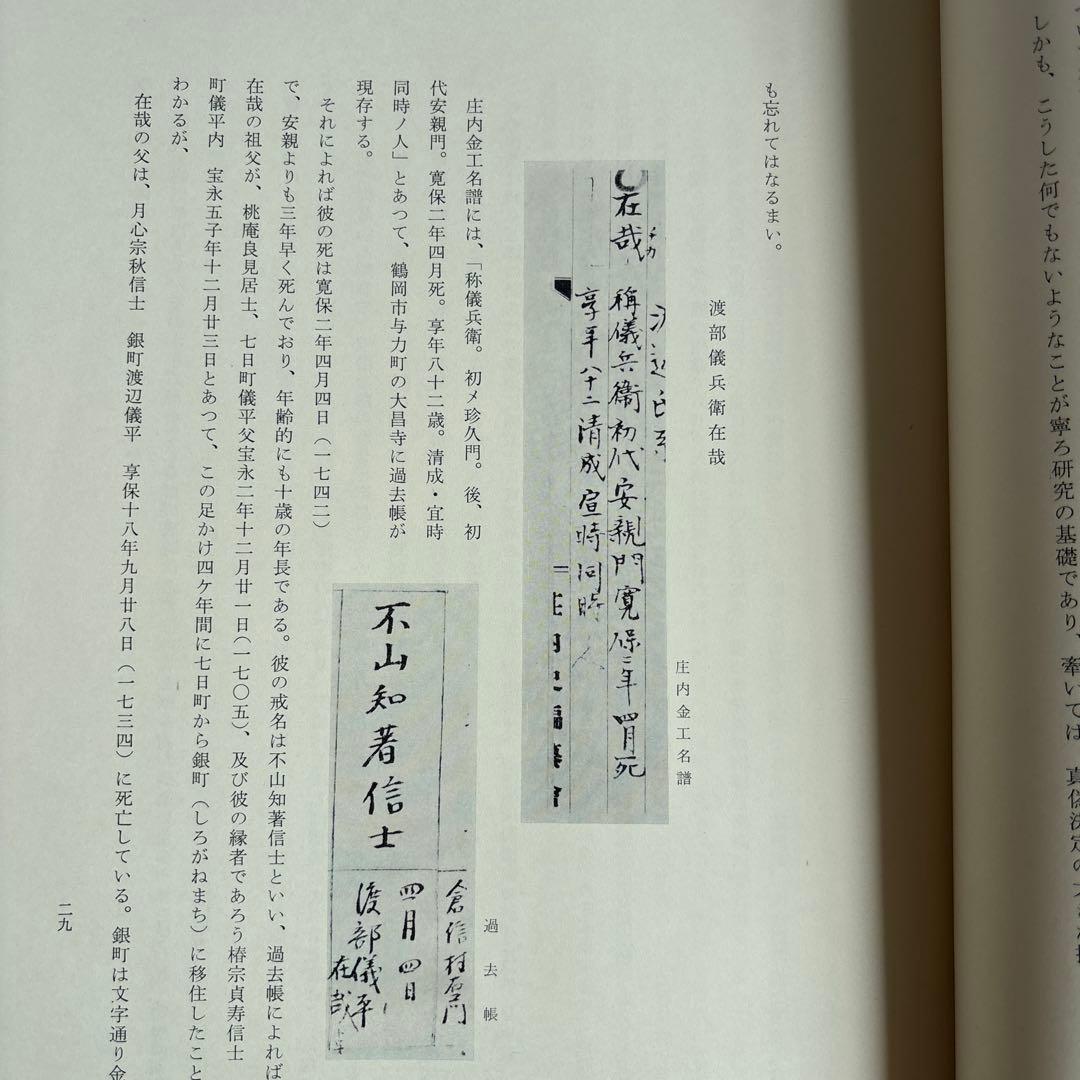 しかも、こうした何でもないようなことが寧ろ研究の基礎であり、牽いては、真偽決定の
も忘れてはなるまい。
渡部儀兵衛在哉
庄内金工名譜
在哉
チカ
稱儀兵衞初代安親門寛保二年四月死
享年八十二清成宣時同時人
庄内金工名譜には、「称儀兵衛。初メ珍久門。後、初
代安親門。寛保二年四月死。享年八十二歳。清成・宜時
同時ノ人」とあつて、鶴岡市与力町の大昌寺に過去帳が
現存する。
過去帳
不山知著信士
四月四日
渡部儀平
在哉
それによれば彼の死は寛保二年四月四日（一七四二）
で、安親よりも三年早く死んでおり、年齢的にも十歳の年長である。彼の戒名は不山知著信士といい、過去帳によれば
在哉の祖父が、桃庵良見居士、七日町儀平父宝永二年十二月廿一日（一七〇五）、及び彼の縁者であろう椿宗貞寿信士
町儀平内　宝永五子年十二月廿三日とあつて、この足かけ四ケ年間に七日町から銀町（しろがねまち）に移住したこと
わかるが、
在哉の父は、月心宗秋信士　銀町渡辺儀平　享保十八年九月廿八日（一七三四）に死亡している。銀町は文字通り金
二九